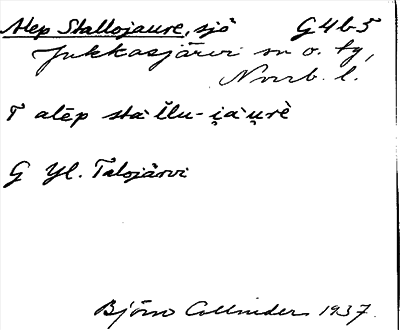 Alep Stallojaure, sjö G4b5
Jukkasjärvi sn o. tg,
Norrb. l.
T alēp stàl̆lu-i̯àu̯rè
G Yl. Talojärvi
Björn Collinder 1937.